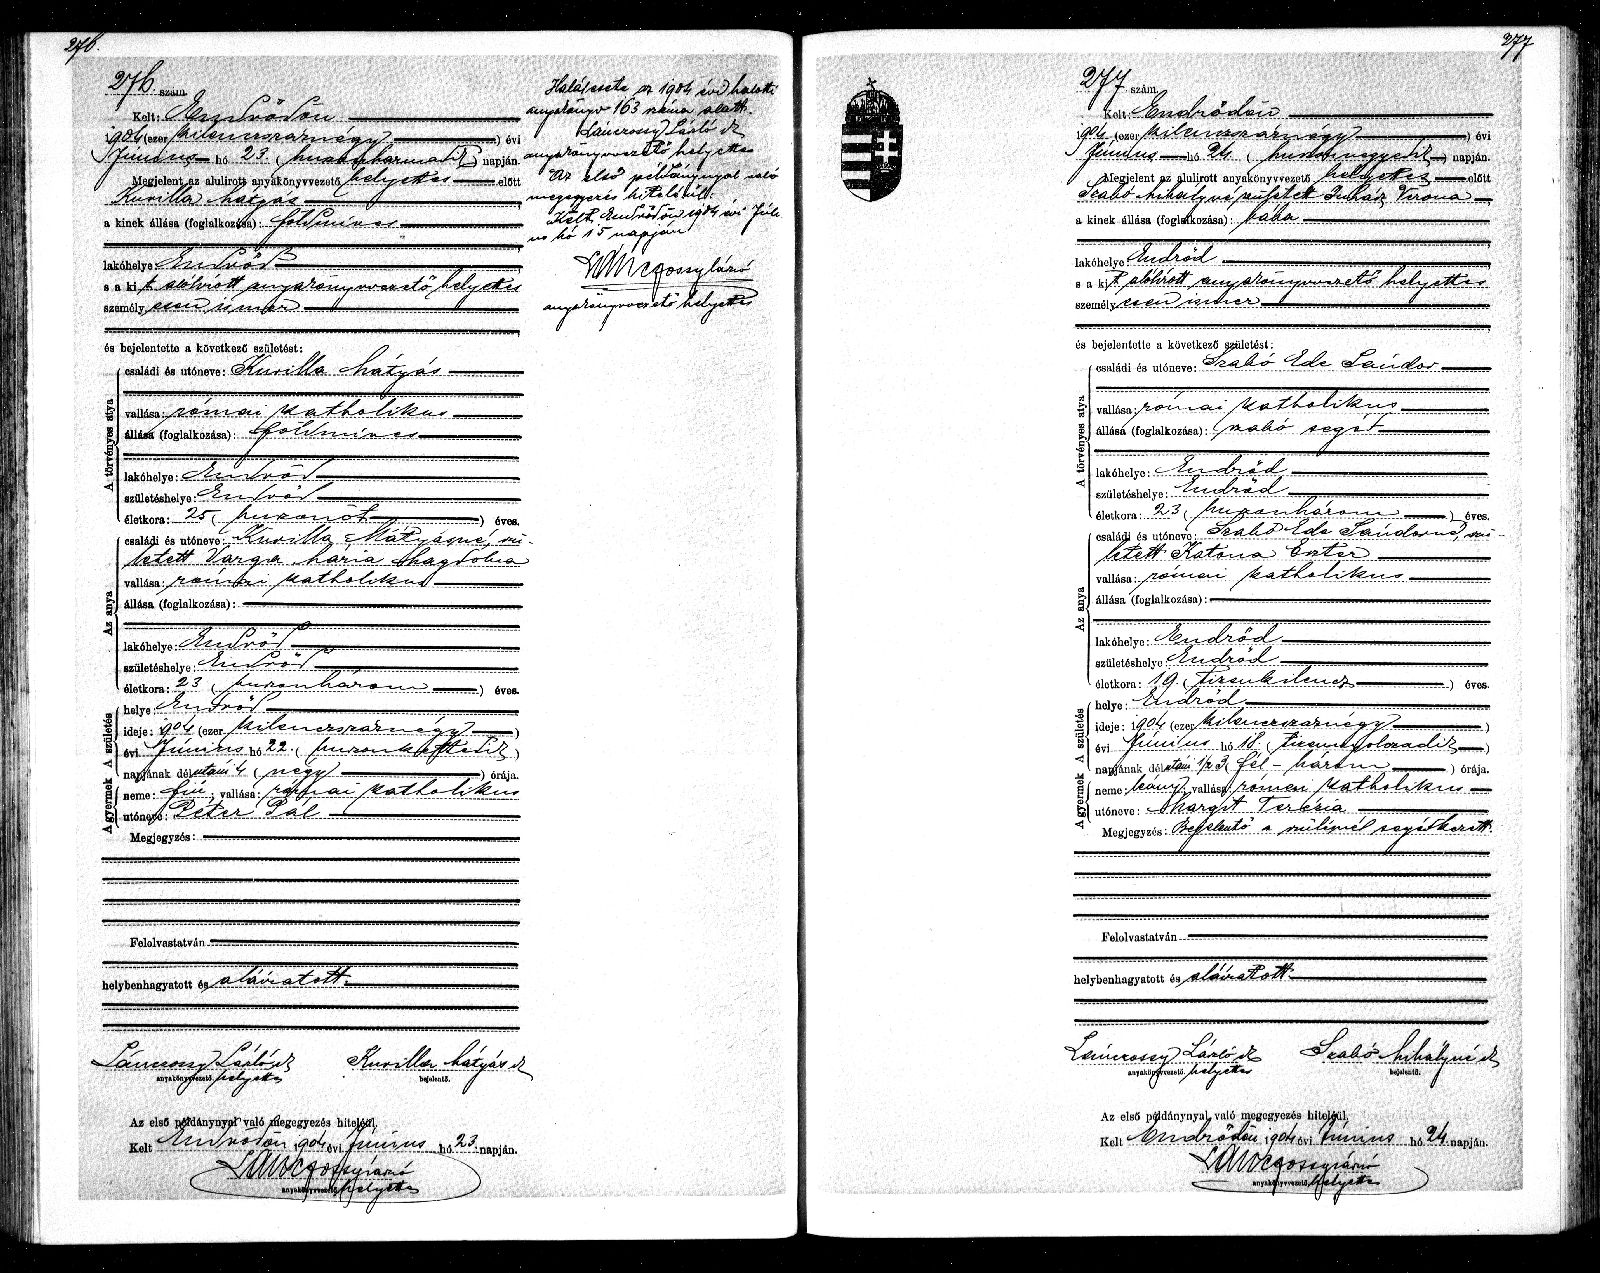 276.
276. szám.
Kelt: Endrődön
1904 (ezer kilenczszáznégy) évi
Június hó 23. (huszonharmadik) napján.
Megjelent az alulirott anyakönyvvezető helyettes előtt
Kurilla Mátyás
a kinek állása (foglalkozása): földmíves
lakóhelye Endrőd
s a kit alólírott anyakönyvvezető helyettes
személyesen ismer
és bejelentette a következő születést:
A törvényes atya
családi és utóneve: Kurilla Mátyás
vallása: római katholikus
állása (foglalkozása): földmíves
lakóhelye: Endrőd
születéshelye: Endrőd
életkora: 25 (huszonöt) éves.
Az anya
családi és utóneve: Kurilla Mátyásné, szü-
letett Varga Mária Magdolna
vallása: római katholikus
állása (foglalkozása):
lakóhelye: Endrőd
születéshelye: Endrőd
életkora: 23 (huszonhárom) éves.
A születés
helye: Endrőd
ideje: 1904 (ezer kilenczszáznégy)
évi Június hó 22. (huszonkettedik)
napjának délutáni 4 (négy) órája.
A gyermek
neme: fiú, vallása: római katholikus
utóneve: Péter Pál
Megjegyzés:
Felolvastatván
helybenhagyatott és aláíratott.
Lánczossy László sk
anyakönyvvezető. helyettes
Kurilla Mátyás sk
bejelentő.
Az első példánynyal való megegyezés hiteléül,
Kelt Endrődön 1904 évi Június hó 23 napján.
Lánczossy László
anyakönyvvezető. helyettes
Halálesete az 1904 évi halotti
anyakönyv 163 száma alatt.
Lánczossy László sk
anyakönyvvezető helyettes
Az első példánynyal való
megegyezés hiteléül.
Kelt Endrődön 1904 évi Júli-
us hó 15 napján
Lánczossy László
anyakönyvvezető helyettes
277
277 szám.
Kelt: Endrődön
1904 (ezer kilenczszáznégy) évi
Június hó 24. (huszonnegyedik) napján.
Megjelent az alulirott anyakönyvvezető helyettes előtt
Szabó Mihályné született Juhász Verona
a kinek állása (foglalkozása): bába
lakóhelye Endrőd
s a kit alólírott anyakönyvvezető helyettes
személyesen ismer
és bejelentette a következő születést:
A törvényes atya
családi és utóneve: Szabó Ede Sándor
vallása: római katholikus
állása (foglalkozása): szabó segéd
lakóhelye: Endrőd
születéshelye: Endrőd
életkora: 23 (huszonhárom) éves.
Az anya
családi és utóneve: Szabó Ede Sándorné, szü-
letett Katona Eszter
vallása: római katholikus
állása (foglalkozása):
lakóhelye: Endrőd
születéshelye Endrőd
életkora: 19. (tizenkilencz) éves.
A születés
helye: Endrőd
ideje: 1904 (ezer kilenczszáznégy)
évi Június hó 18. (tizennyolczadik)
napjának délutáni 1/2 3 (fél-három) órája.
A gyermek
neme: leány, vallása: római katholikus
utóneve: Margit Terézia
Megjegyzés: Bejelentő a szülésnél segédkezett.
Felolvastatván
helybenhagyatott és aláíratott.
Lánczossy László sk
anyakönyvvezető. helyettes
Szabó Mihályné sk
bejelentő.
Az első példánynyal való megegyezés hiteléül,
Kelt Endrődön, 1904 évi Június hó 24 napján.
Lánczossy László
anyakönyvvezető. helyettes